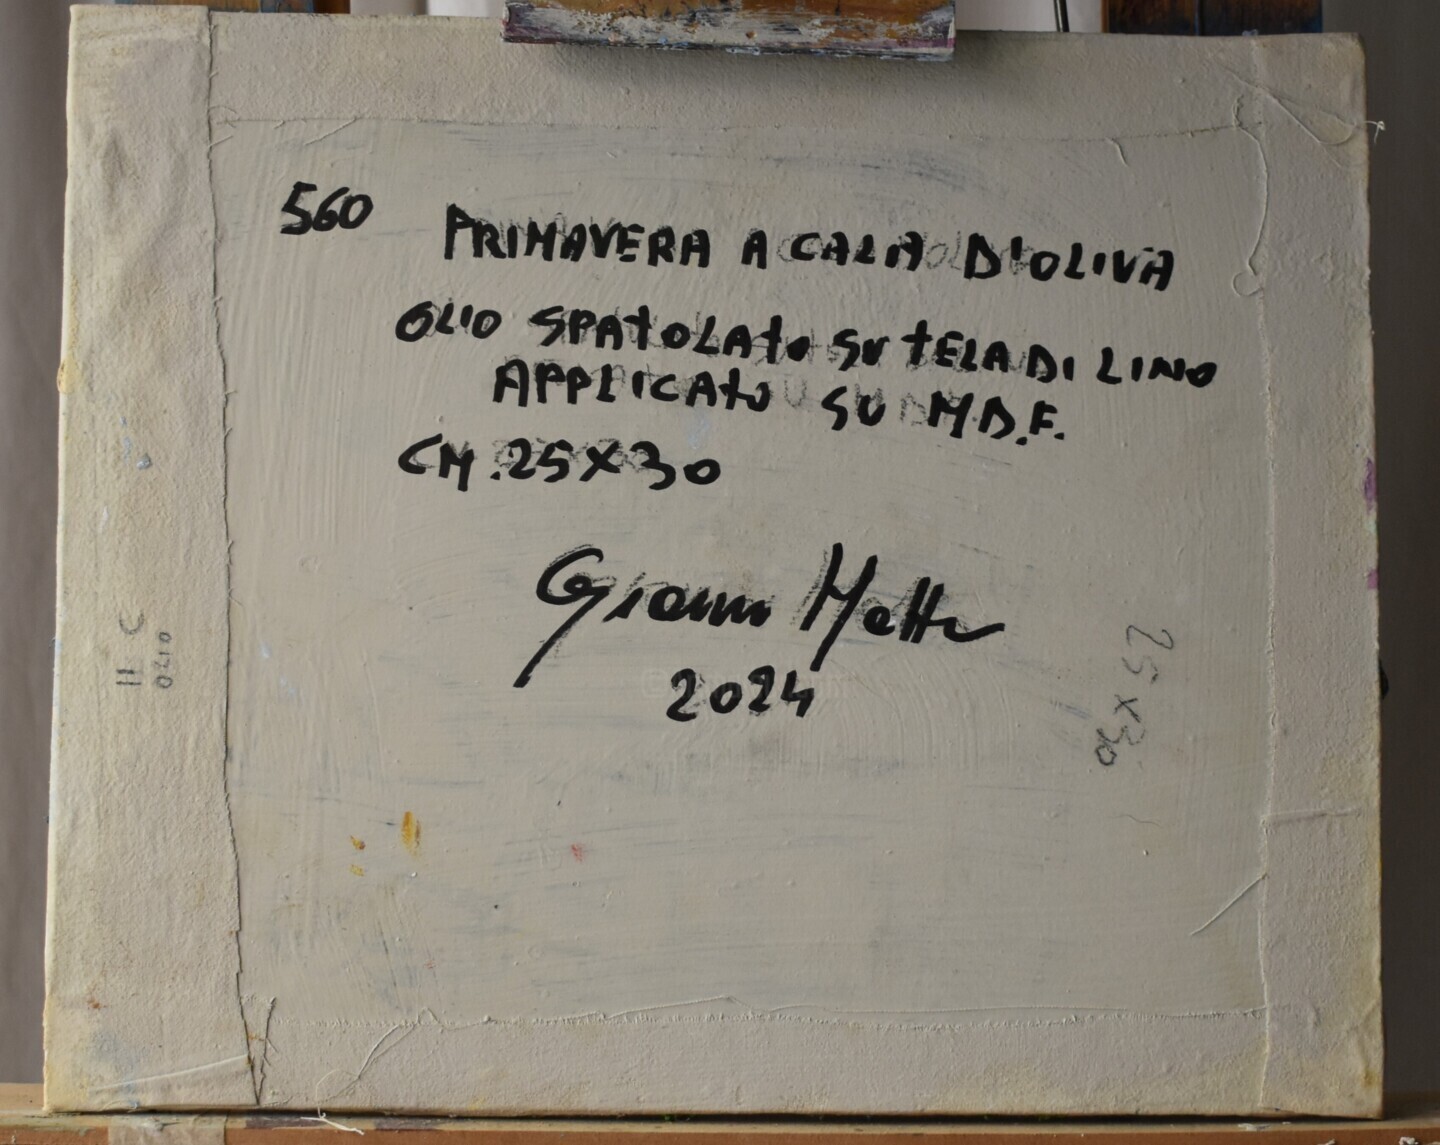 560 PRIMAVERA A CALA D'OLIVA
OLIO SPATOLATO SU TELA DI LINO
APPLICATO SU M.D.F.
CM. 25X30
Gianni Mattu
2024
25 X 30
II C
OLIO